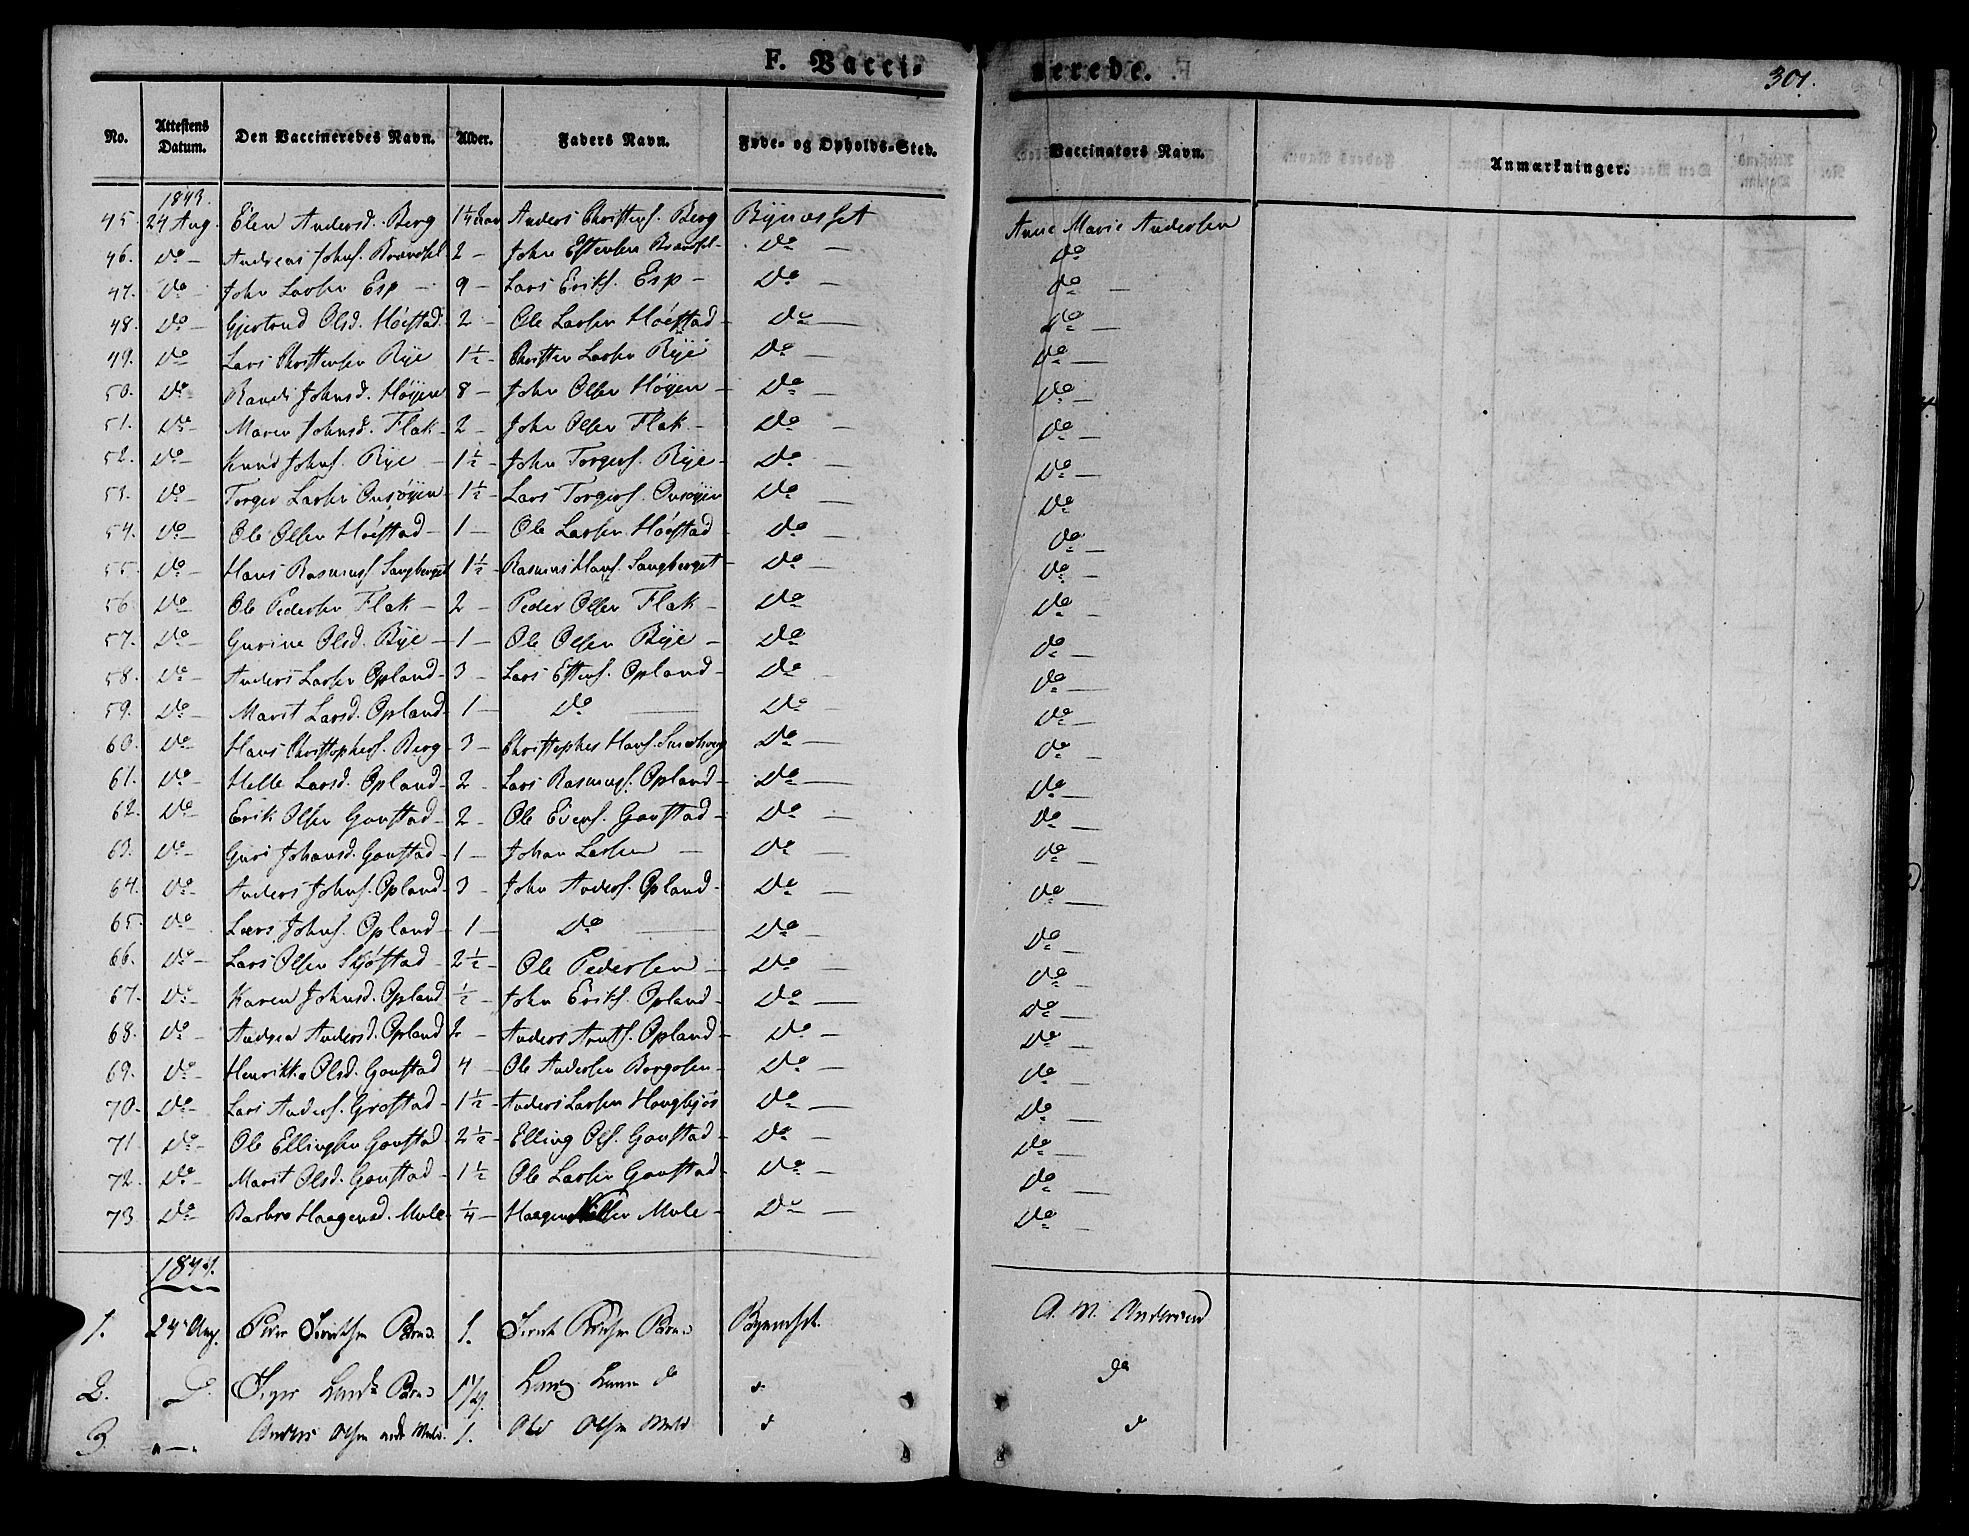 F. Vacci- nerede. 301.
No. Attestens Datum. Den Vaccineredes Navn. Alder. Faders Navn. Føde- og Opholds-Sted. Vaccinators Navn. Anmærkninger.
1843.
45. 24 Aug. Elen Andersd. Berg 1¼ Aar Anders Christens. Berg Bynæsset Anne Marie Andersen
46. Do - Andreas Johns. 2 - John Estensen Do - Do
47. Do - John Larsen Esp - 9 - Lars Eriks. Esp - Do - Do -
48. Do - Gjertrud Olsd. Høistad 2 - Ole Larsen Høistad - Do - Do -
49. Do Lars Christensen Rye 1½ - Christen Larsen Rye Do - Do -
50. Do - Randi Johnsd. Høyen 8 - John Olsen Høyen - Do - Do -
51. Do Maren Johnsd. Flak - 2 - John Olsen Flak - Do - Do -
52. Do - Knud Johns. Rye - 1½ - John Torgers. Rye - Do - Do -
53. Do - Torger Larsen Onsøyen - 1½ - Lars Torgers. Onsøyen Do - Do
54. Do - Ole Olsen Høistad - 1 - Ole Larsen Høistad Do - Do -
55. Do - Hans Rasmuss. Langberget 1½ - Rasmus Hans. Langberget - Do - Do -
56 Do Ole Pedersen Flak - 2 - Peder Olsen Flak - Do Do -
57. Do - Gurine Olsd. Rye - 1 - Ole Olsen Rye - Do Do -
58. Do - Anders Larsen Opland - 3 - Lars Estens. Opland - Do - Do -
59. Do - Marit Larsd. Opland - 1 - Do - Do - Do -
60. Do - Hans Christophers. Berg - 3 - Christopher Hans. Do - Do -
61. Do - Helle Larsd. Opland - 2 - Lars Rasmuss. Opland - Do - Do -
62. Do Erik Olsen Gaustad - 2 - Ole Evens. Gaustad - Do - Do -
63. Do - Guri Johansd. Gaustad - 1 - Johan Larsen - Do - Do -
64. Do - Anders Johns. Opland - 3 - John Anders. Opland - Do - Do -
65. Do - Lars Johns. Opland - 1 - Do - Do - Do -
66. Do - Lars Olsen Skjøstad - 2½ - Ole Pedersen - Do - Do -
67. Do - Karen Johnsd. Opland ½ - John Eriks. Opland - Do - Do -
68. Do - Andrea Andersd. Opland 2 - Anders Arnts. Opland - Do - Do -
69. Do - Henrikke Olsd. Gaustad 4 - Ole Andersen Borgosen - Do - Do -
70. Do - Lars Anders. Grøstad - 1½ - Anders Larsen Do - Do -
71 Do - Ole Ellingsen Gaustad - 2½ - Elling Ols. Gaustad - Do - Do -
72. Do - Marit Olsd. Gaustad - 1½ Ole Larsen Gaustad - Do - Do -
73 Do - Barbro Haagensd. Mule - ¼ - Haagen Mule - Do - Do -
1844.
1. 24 Aug. Peder 1. Bynæsset. A. M. Andersen
2. Do 1¼. do do
3. " Anders Olsen 1. Ole Olsen